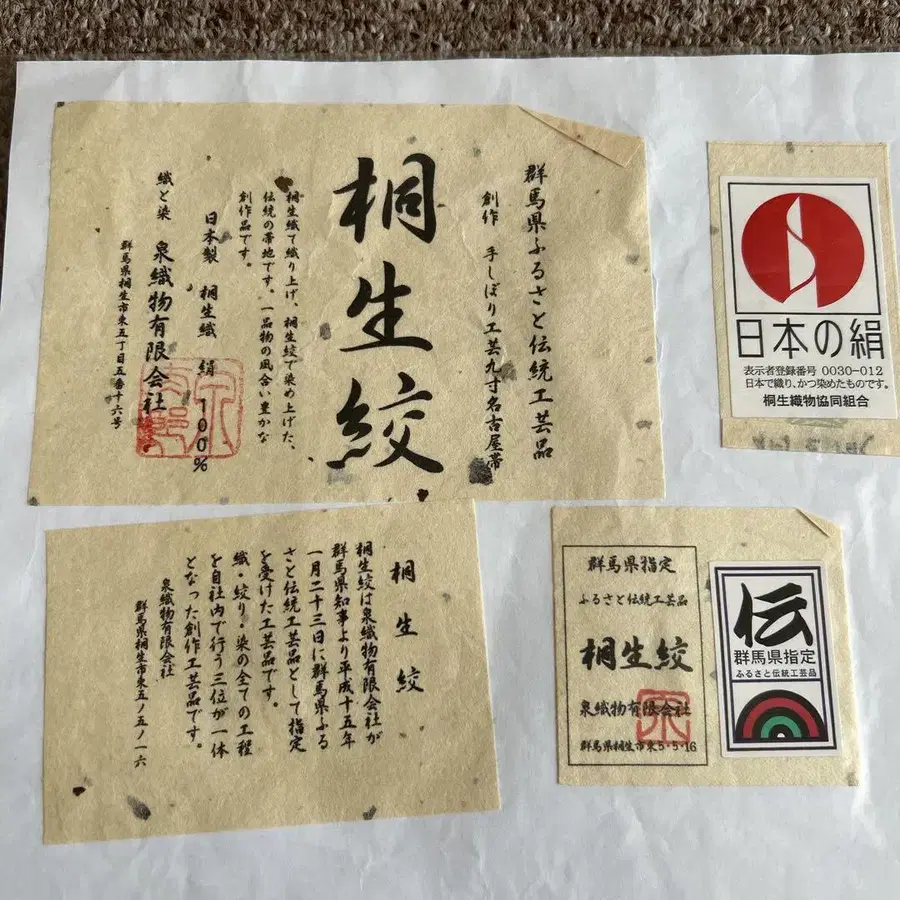 群馬県ふるさと伝統工芸品
創作 手しぼり工芸九寸名古屋帯
桐生絞
桐生織で織り上げ、桐生絞で染め上げた、
伝統の帯地です。一品物の風合い豊かな
創作品です。
日本製 桐生織 絹 100%
織と染 泉織物有限会社
群馬県桐生市東五丁目五番十六号
日本の絹
表示者登録番号 0030-012
日本で織り、かつ染めたものです。
桐生織物協同組合
桐生絞
桐生絞は泉織物有限会社が
群馬県知事より平成十五年
一月二十三日に群馬県ふる
さと伝統工芸品として指定
を受けた工芸品です。
織・絞り・染の全ての工程
を自社内で行う三位が一体
となった創作工芸品です。
泉織物有限会社
群馬県桐生市東五ノ五ノ一六
群馬県指定
ふるさと伝統工芸品
桐生絞
泉織物有限会社
群馬県桐生市東5・5・16
伝
群馬県指定
ふるさと伝統工芸品